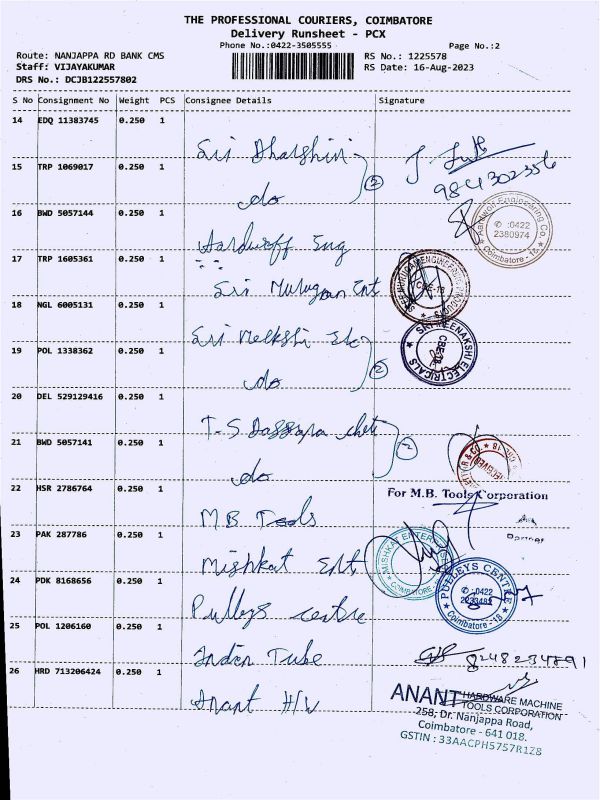 THE PROFESSIONAL COURIERS, COIMBATORE
Delivery Runsheet - PCX
Phone No.:0422-3505555
Page No.:2
Route: NANJAPPA RD BANK CMS
RS No.: 1225578
Staff: VIJAYAKUMAR
RS Date: 16-Aug-2023
DRS No.: DCJB122557802
S No Consignment No Weight PCS Consignee Details Signature
14 EDQ 11383745 0.250 1
Sri Dharshini
15 TRP 1069017 0.250 1
do
2
9841302356
16 BWD 5057144 0.250 1
Aardwolf Eng
Aardwolf Engineering Co.
✆ :0422
2380974
Coimbatore - 18
17 TRP 1605361 0.250 1
Sri Murugan Ent
CBE-18
18 NGL 6005131 0.250 1
Sri
19 POL 1338362 0.250 1
do
2
SRI MEENAKSHI ELECTRICALS
CBE-18
20 DEL 529129416 0.250 1
T.S.
21 BWD 5057141 0.250 1
do
2
22 HSR 2786764 0.250 1
M.B Tools
For M.B. Tools Corporation
23 PAK 287786 0.250 1
Mishkat Ent
MISHKAT ENTER
COIMBATORE
24 PDK 8168656 0.250 1
Pulleys centre
PULLEYS CENTRE
✆ :0422
Coimbatore - 18
25 POL 1206160 0.250 1
Indian Tube
8248234891
26 HRD 713206424 0.250 1
Anant H/W
ANANT HARDWARE MACHINE
TOOLS CORPORATION
258, Dr. Nanjappa Road,
Coimbatore - 641 018.
GSTIN : 33AACPH5757R1Z8